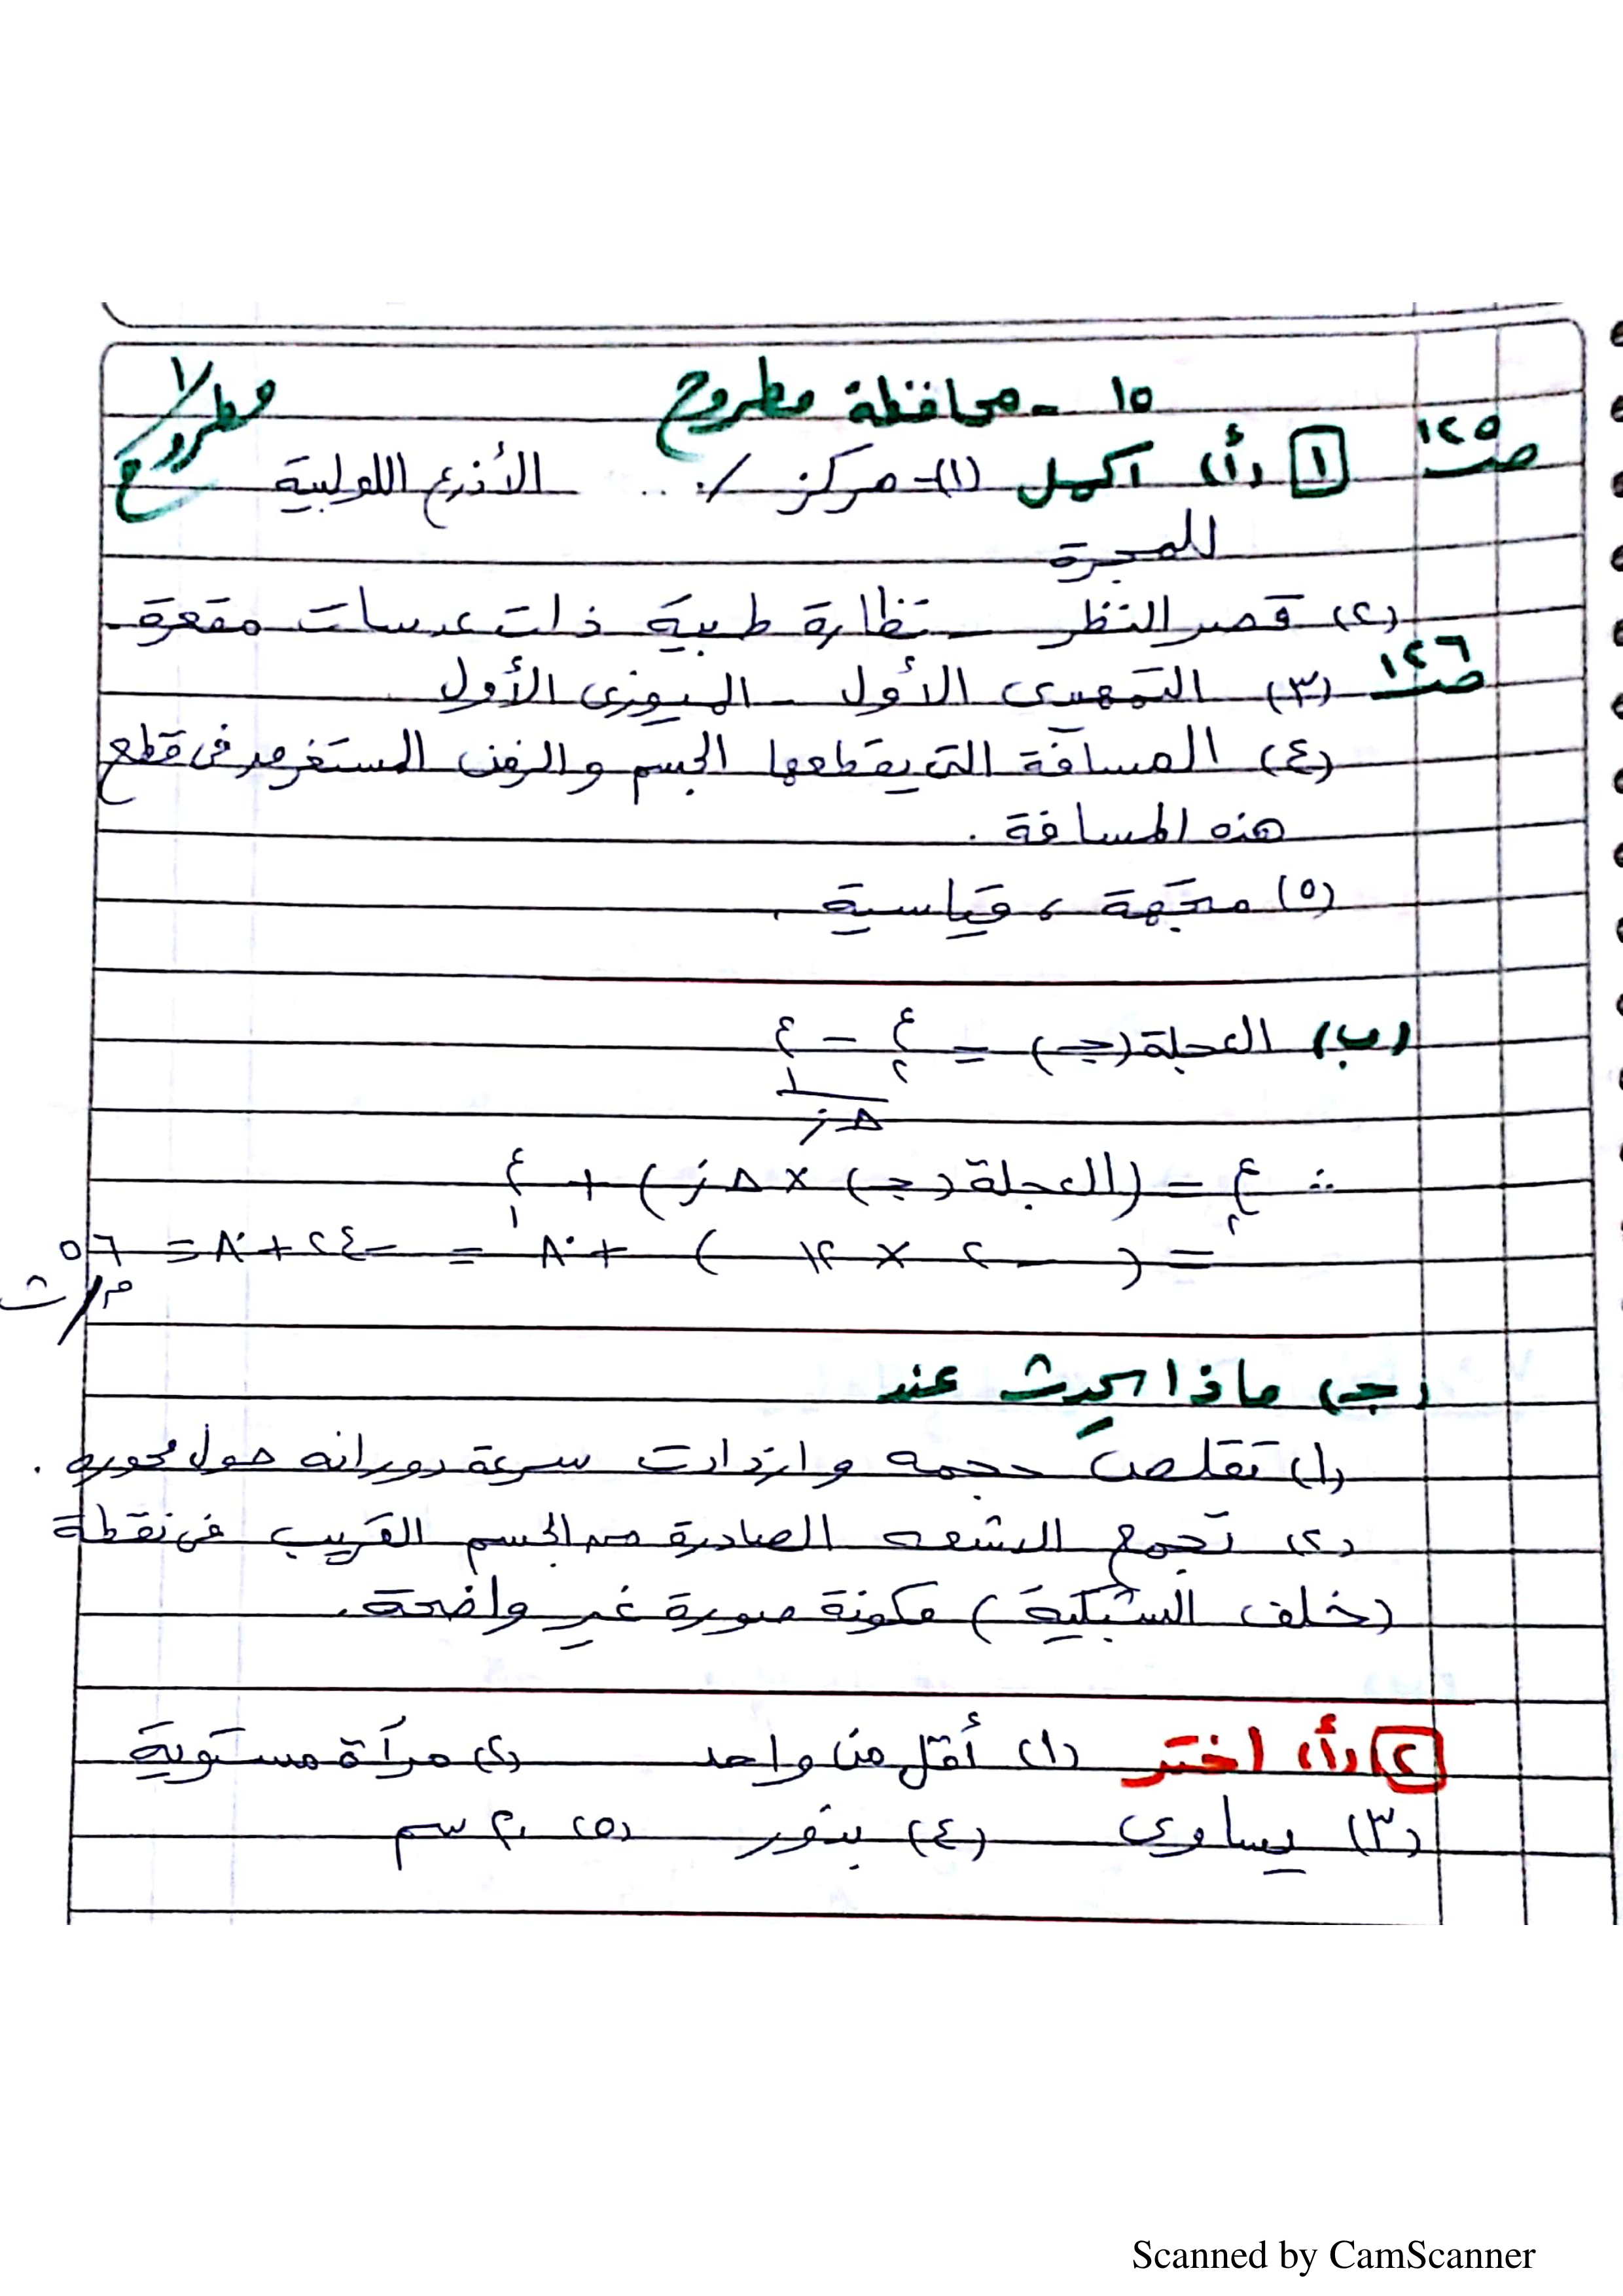 ١٥ - محافظة مطروح
مطروح /١
صـ ١٢٥
١ (أ) أكمل (١) - مركز / ... الأذرع اللولبية
للمجرة
(٢) قصر النظر - نظارة طبية ذات عدسات مقعرة.
صـ ١٢٦
(٣) التمهيدى الأول - الميوزى الأول
(٤) المسافة التى يقطعها الجسم والزمن المستغرق فى قطع
هذه المسافة .
(٥) متجهة ، قياسية .
(ب) العجلة (جـ) = ع٢ - ع١ / Δز
∴ ع٢ = (العجلة (جـ) × Δز) + ع١
= (-٢ × ١٢) + ٨٠ = -٢٤ + ٨٠ = ٥٦ م/ث
(جـ) ماذا يحدث عند
(١) تقلصت حجمه وازدادت سرعة دورانه حول محوره .
(٢) تجمع الاشعه الصادرة من الجسم القريب فى نقطة
(خلف الشبكية) مكونة صورة غير واضحة.
٢ (أ) اختر (١) أقل من واحد (٢) مرآة مستوية
(٣) يساوى (٤) بذور (٥) ٢٠ سم
Scanned by CamScanner